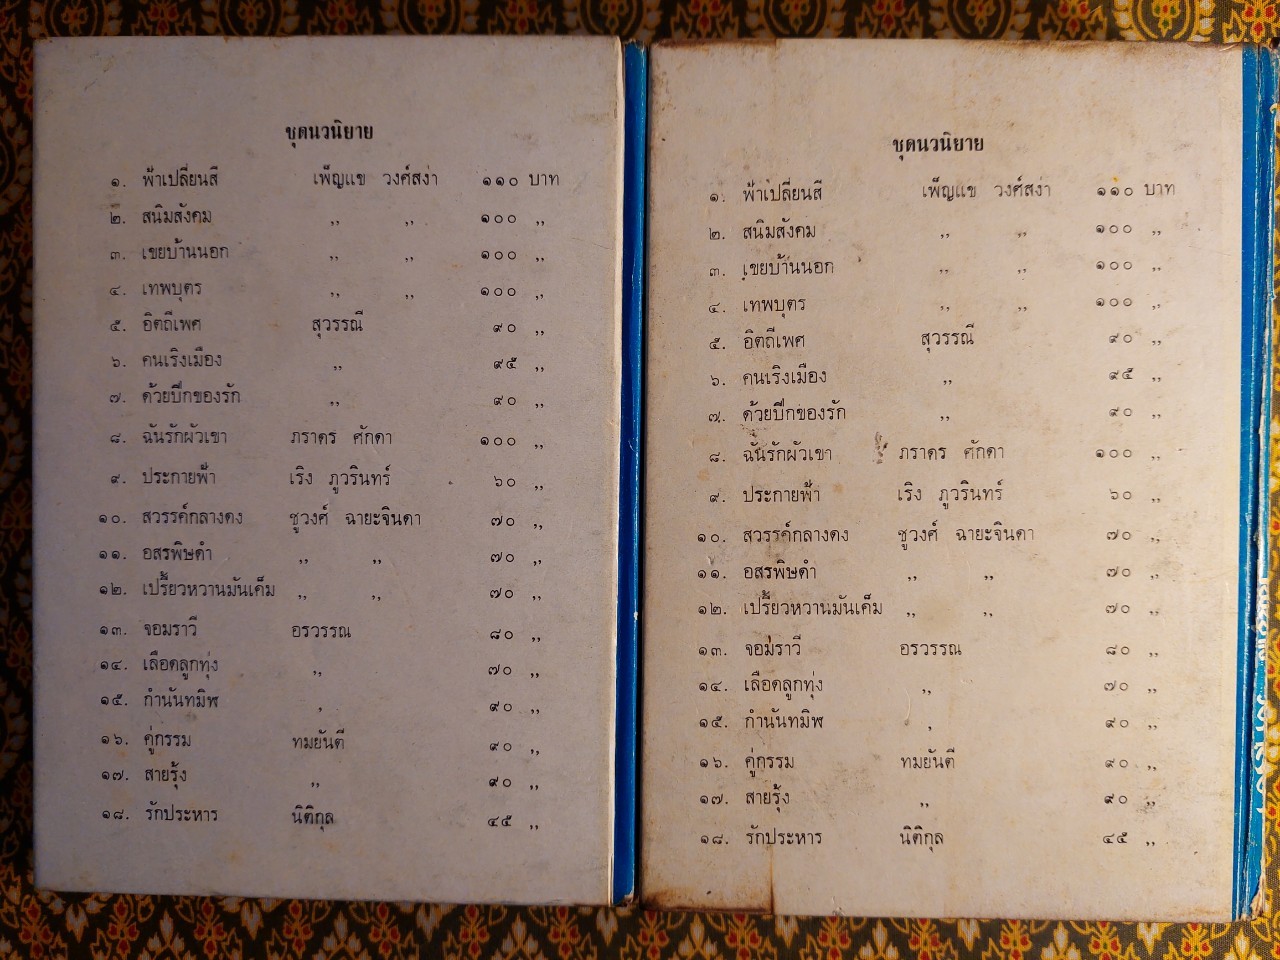 ชุดนวนิยาย
๑. ฟ้าเปลี่ยนสี เพ็ญแข วงศ์สง่า ๑๑๐ บาท
๒. สนิมสังคม ,, ,, ๑๐๐ ,,
๓. เขยบ้านนอก ,, ,, ๑๐๐ ,,
๔. เทพบุตร ,, ,, ๑๐๐ ,,
๕. อิตถีเพศ สุวรรณี ๙๐ ,,
๖. คนเริงเมือง ,, ๙๕ ,,
๗. ด้วยปีกของรัก ,, ๙๐ ,,
๘. ฉันรักผัวเขา ภราดร ศักดา ๑๐๐ ,,
๙. ประกายฟ้า เริง ภูวรินทร์ ๖๐ ,,
๑๐. สวรรค์กลางดง ชูวงศ์ ฉายะจินดา ๗๐ ,,
๑๑. อสรพิษดำ ,, ,, ๗๐ ,,
๑๒. เปรี้ยวหวานมันเค็ม ,, ,, ๗๐ ,,
๑๓. จอมราวี อรวรรณ ๘๐ ,,
๑๔. เลือดลูกทุ่ง ,, ๗๐ ,,
๑๕. กำนันทมิฬ , ๙๐ ,,
๑๖. คู่กรรม ทมยันตี ๙๐ ,,
๑๗. สายรุ้ง ,, ๙๐ ,,
๑๘. รักประหาร นิติกุล ๔๕ ,,
ชุดนวนิยาย
๑. ฟ้าเปลี่ยนสี เพ็ญแข วงศ์สง่า ๑๑๐ บาท
๒. สนิมสังคม ,, ,, ๑๐๐ ,,
๓. เขยบ้านนอก ,, ,, ๑๐๐ ,,
๔. เทพบุตร ,, ,, ๑๐๐ ,,
๕. อิตถีเพศ สุวรรณี ๙๐ ,,
๖. คนเริงเมือง ,, ๙๕ ,,
๗. ด้วยปีกของรัก ,, ๙๐ ,,
๘. ฉันรักผัวเขา ภราดร ศักดา ๑๐๐ ,,
๙. ประกายฟ้า เริง ภูวรินทร์ ๖๐ ,,
๑๐. สวรรค์กลางดง ชูวงศ์ ฉายะจินดา ๗๐ ,,
๑๑. อสรพิษดำ ,, ,, ๗๐ ,,
๑๒. เปรี้ยวหวานมันเค็ม ,, ,, ๗๐ ,,
๑๓. จอมราวี อรวรรณ ๘๐ ,,
๑๔. เลือดลูกทุ่ง ,, ๗๐ ,,
๑๕. กำนันทมิฬ , ๙๐ ,,
๑๖. คู่กรรม ทมยันตี ๙๐ ,,
๑๗. สายรุ้ง ,, ๙๐ ,,
๑๘. รักประหาร นิติกุล ๔๕ ,,